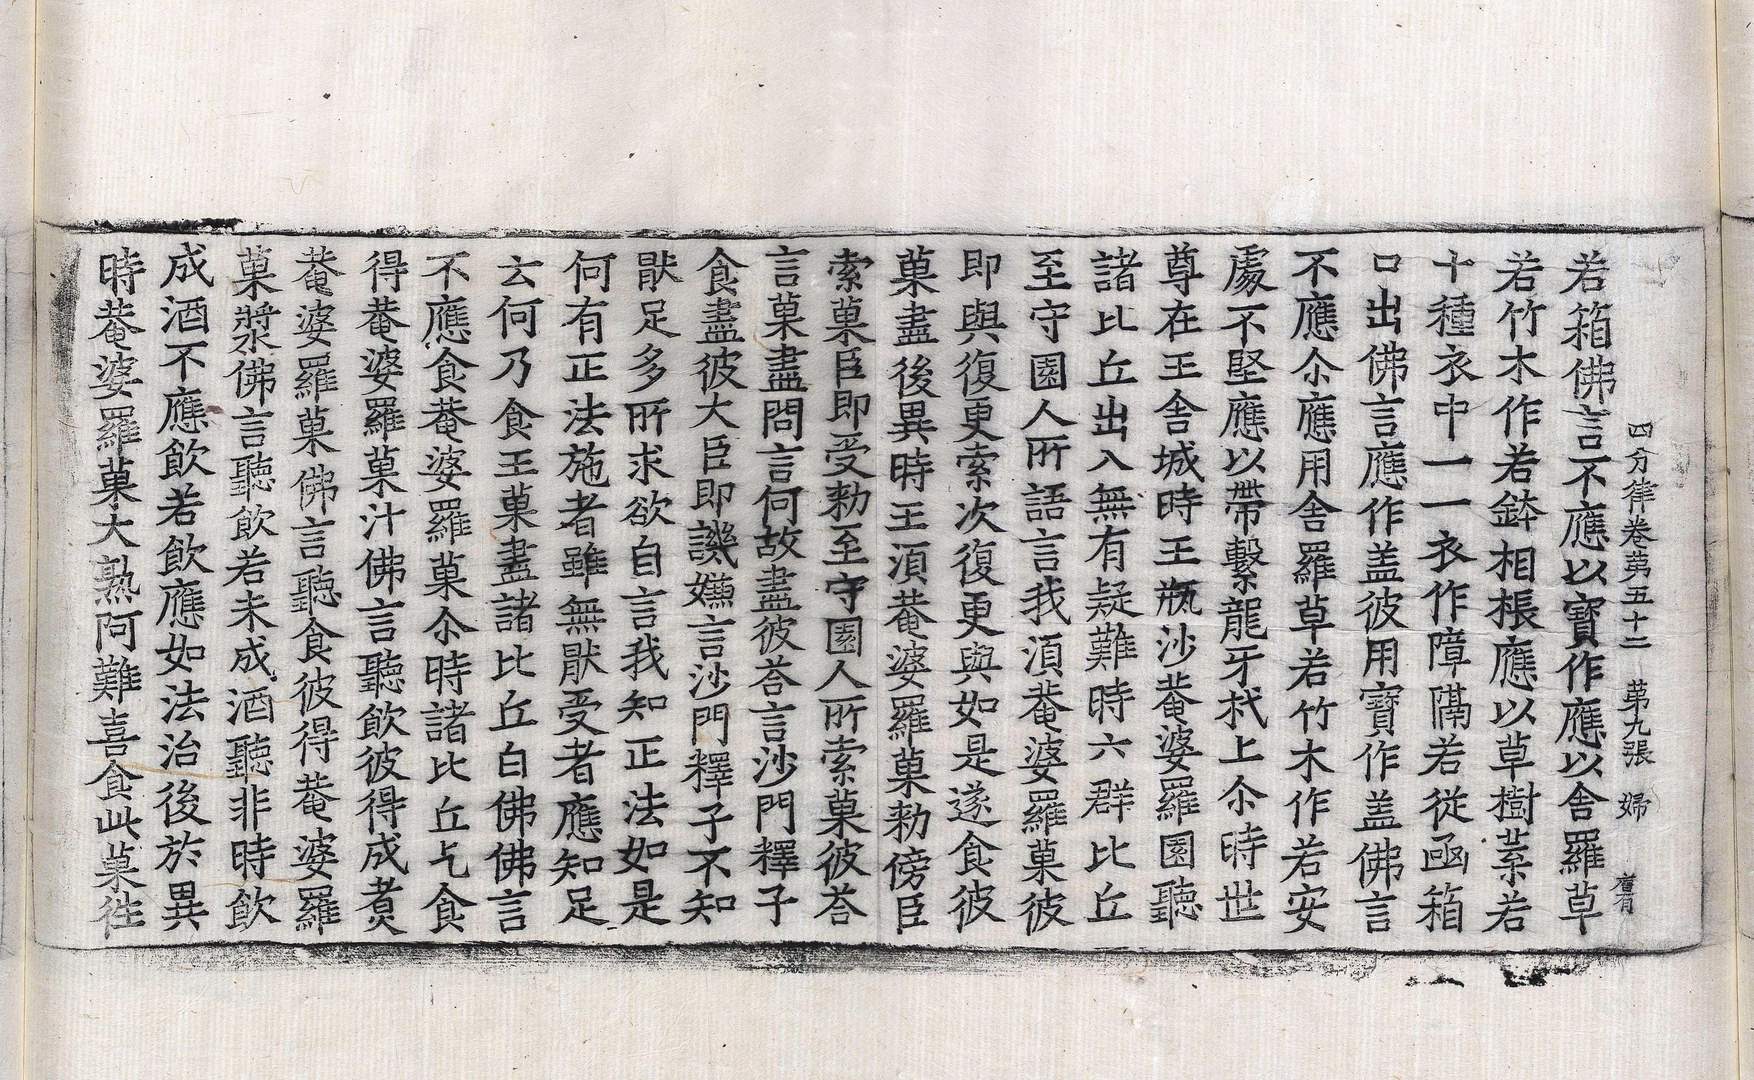 四分律卷苐五十二 苐九張 婦
若箱佛言不應以寶作應以舍羅草
若竹木作若鉢相棖應以草樹葉若
十種衣中一一衣作障隔若從函箱
口出佛言應作盖彼用寶作盖佛言
不應尒應用舍羅草若竹木作若安
處不堅應以帶繫龍牙杙上尒時世
尊在王舍城時王瓶沙菴婆羅園聽
諸比丘出入無有疑難時六群比丘
至守園人所語言我湏菴婆羅菓彼
即與復更索次復更與如是遂食彼
菓盡後異時王湏菴婆羅菓勑傍臣
索菓臣即受勑至守園人所索菓彼荅
言菓盡問言何故盡彼荅言沙門釋子
食盡彼大臣即譏嫌言沙門釋子不知
猒足多所求欲自言我知正法如是
何有正法施者雖無猒受者應知足
云何乃食王菓盡諸比丘白佛佛言
不應食菴婆羅菓尒時諸比丘乞食
得菴婆羅菓汁佛言聽飲彼得成煑
菴婆羅菓佛言聽食彼得菴婆羅
菓將水佛言聽飲若未成酒聽非時飲
成酒不應飲若飲應如法治後於異
時菴婆羅菓大熟阿難喜食此菓徃